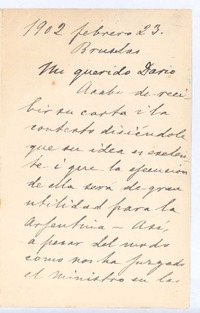 1902 febrero 23.
Bruselas
Mi querido Dario
Acabo de reci-
bir su carta i la
contesto diciéndole
que su idea es exelen-
te i que la ejecucion
de ella será de gran
utilidad para la
Argentina — Asi,
a pesar del modo
como nos ha juzgado
el Ministro en las